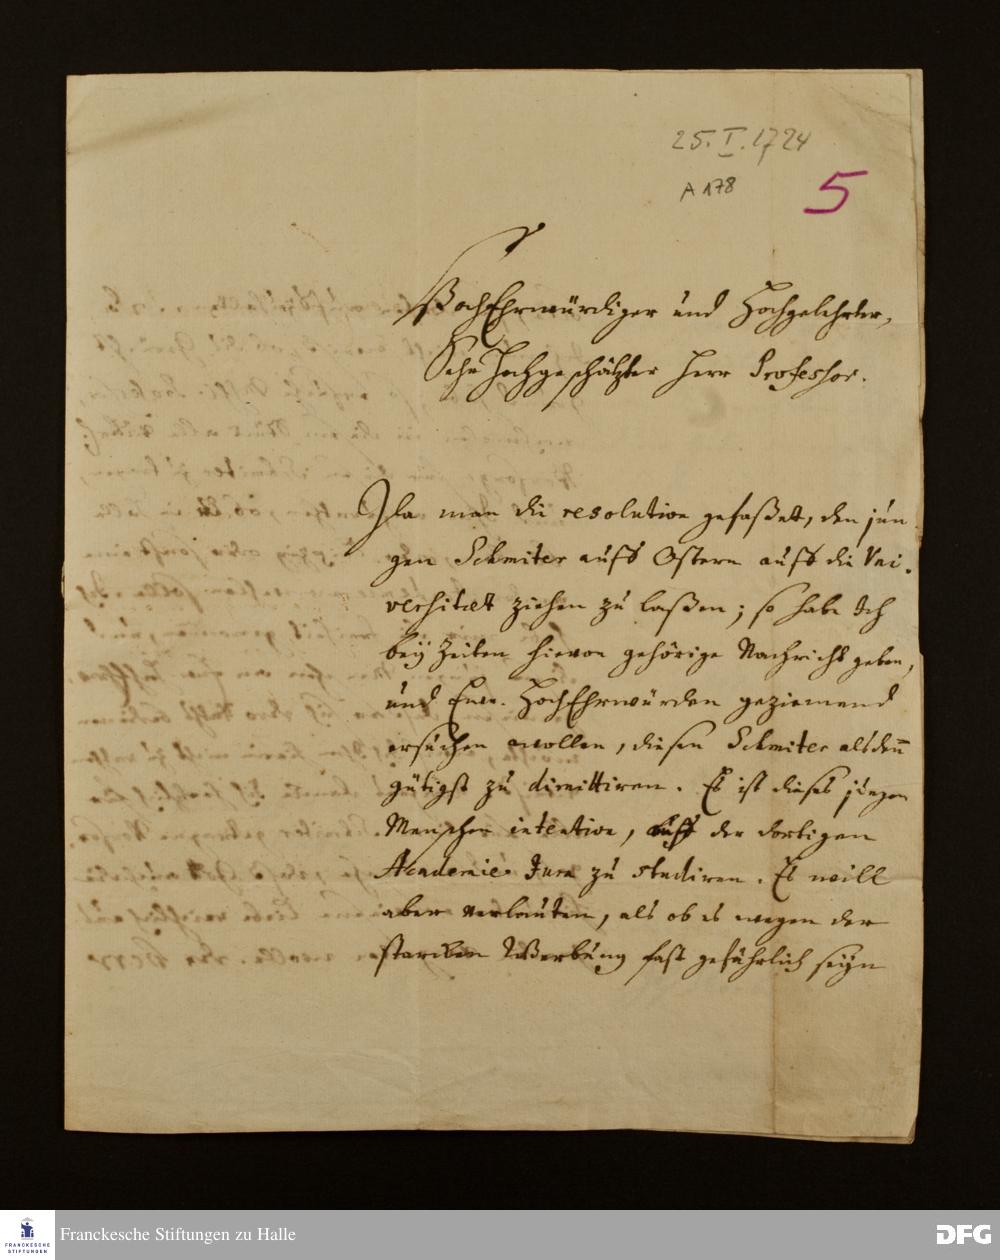 25. I. 1724
A 178
5
HochEhrwürdiger und Hochgelehrter,
Sehr Hochgeschätzter Herr Professor.
Da man die resolution gefaßet, den jun
gen Schmiter auff Ostern auff die Uni-
versitaet ziehen zu laßen; so habe Ich
bey Zeiten hievon gehörige Nachricht geben,
und Euer. HochEhrwürden geziemend
ersuchen wollen, diesen Schmiter alsdenn
gütigst zu dimittiren. Es ist dieses jungen
Menschen intention, auff der dortigen
Academie Jura zu studiren. Es will
aber verlauten, als ob es wegen der
starcken Werbung fast gefährlich seyn
Franckesche Stiftungen zu Halle
FRANCKESCHE
STIFTUNGEN
DFG